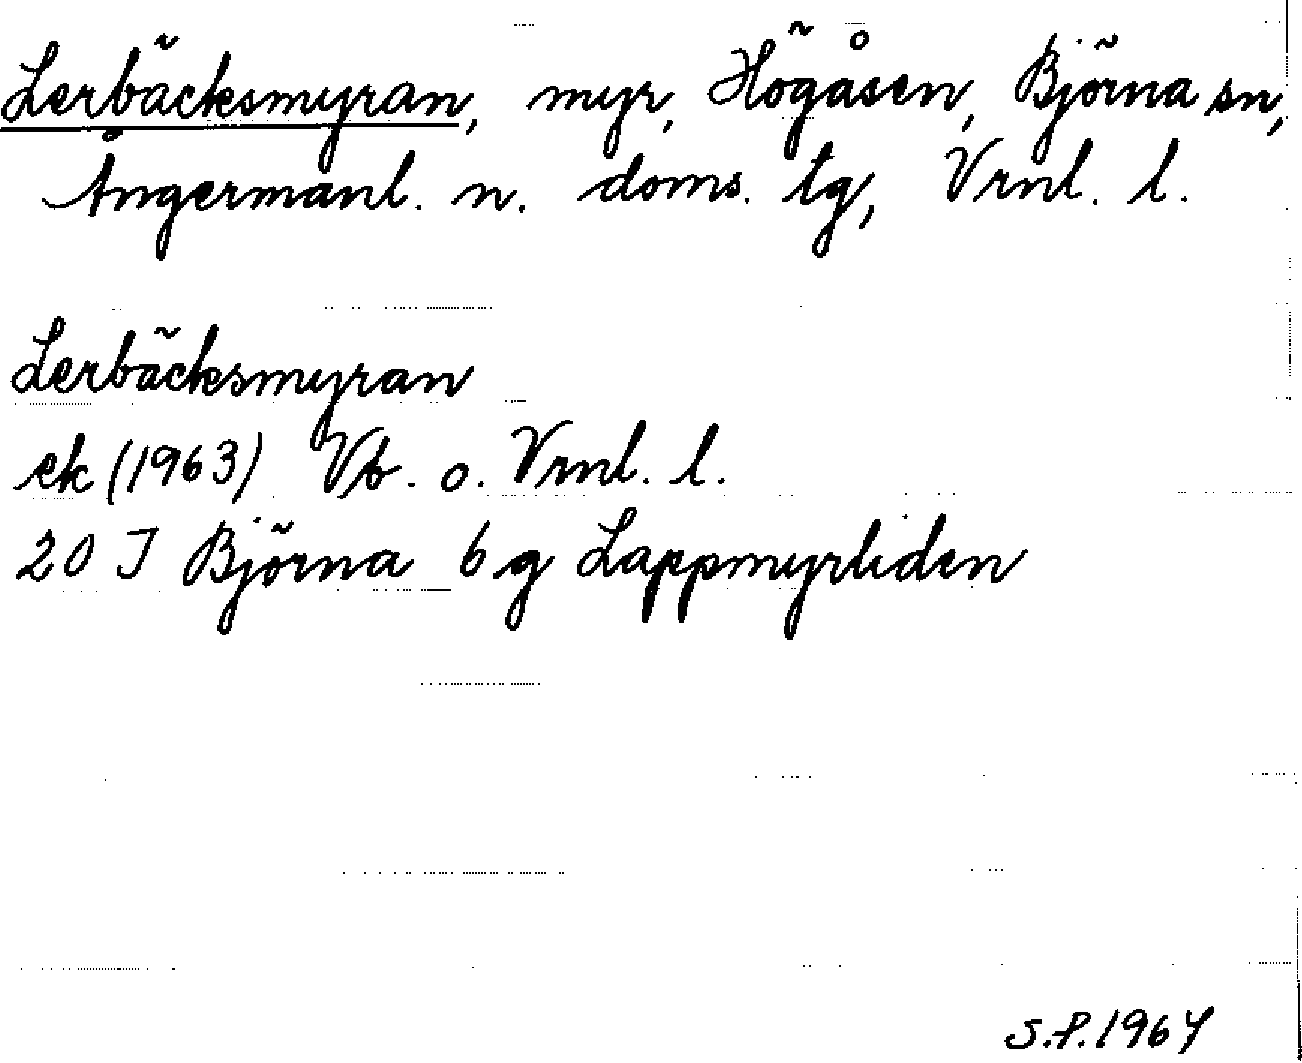 Lerbäcksmyran, myr, Högåsen, Björna sn,
Ångermanl. n. doms. tg, Vrnl. l.
Lerbäcksmyran
ek (1963) Vb. o. Vrnl. l.
20 J Björna 6 g Lappmyrliden
S.P. 1964